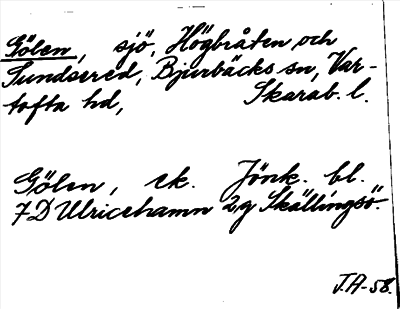 Gölen, sjö, Högbråten och
Sundsered, Bjurbäcks sn, Var-
tofta hd, Skarab. l.
Gölen, ek. Jönk. bl.
7D Ulricehamn 2g Skällingsö.
J.A-58.